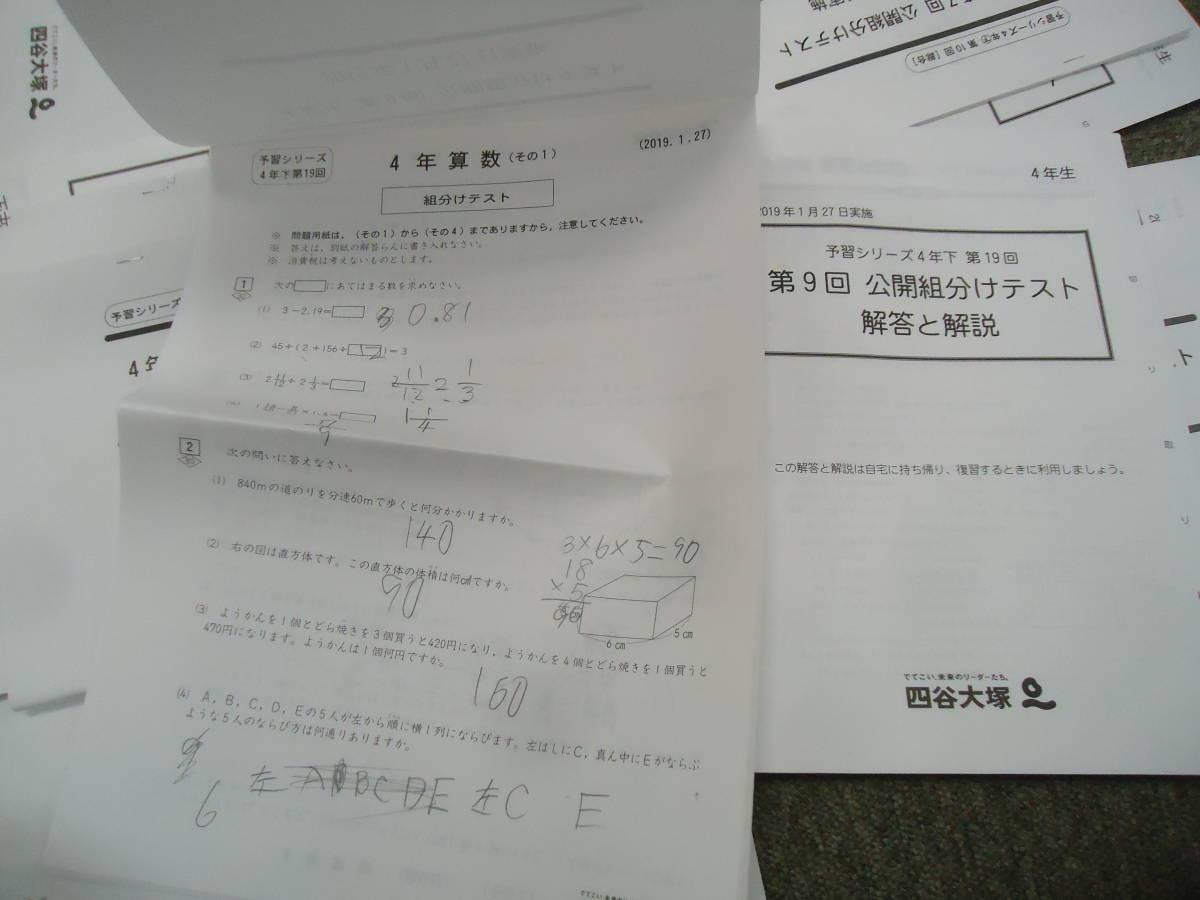 四谷大塚
予習シリーズ
4年下第19回
4年算数(その1)
(2019.1.27)
組分けテスト
※ 問題用紙は,(その1)から(その4)までありますから,注意してください。
※ 答えは,別紙の解答らんに書き入れなさい。
※ 消費税は考えないものとします。
1 次の□にあてはまる数を求めなさい。
(1) 3-2.19=□ 0.81
(2) 45÷(2+156÷□)=3
12
2 次の問いに答えなさい。
(1) 840mの道のりを分速60mで歩くと何分かかりますか。
140
(2) 右の図は直方体です。この直方体の体積は何㎤ですか。
90
3×6×5=90
18
×5
6㎝
5㎝
(3) ようかんを1個とどら焼きを3個買うと420円になり,ようかんを4個とどら焼きを1個買うと
470円になります。ようかんは1個何円ですか。
160
(4) A,B,C,D,Eの5人が左から順に横1列にならびます。左はしにC,真ん中にEがならぶ
ような5人のならび方は何通りありますか。
6
左 C E
予習シリーズ
公開組分けテスト
予習シリーズ4年下 第10回 [総合]
4年生
2019年1月27日実施
予習シリーズ4年下 第19回
第9回 公開組分けテスト
解答と解説
この解答と解説は自宅に持ち帰り、復習するときに利用しましょう。
でてこい、未来のリーダーたち。
四谷大塚